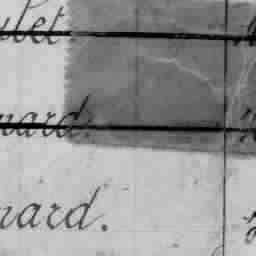 ulet
nard.
nard.